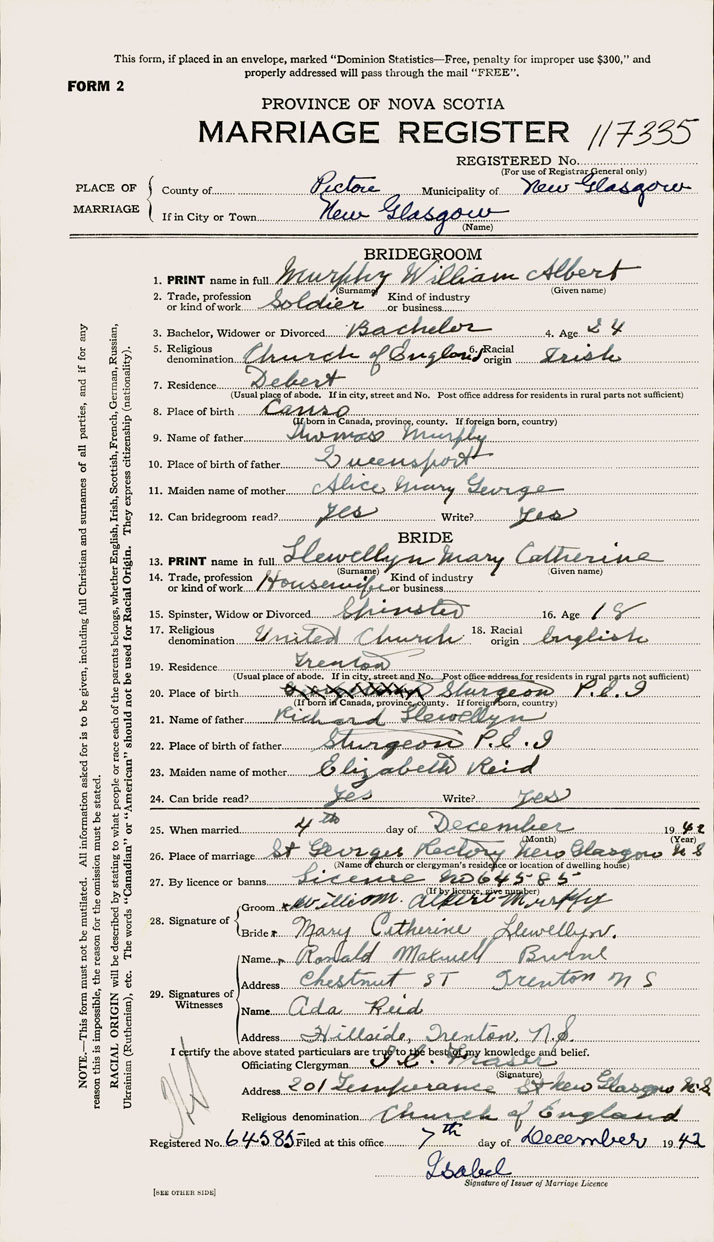 This form, if placed in an envelope, marked "Dominion Statistics—Free, penalty for improper use $300," and
properly addressed will pass through the mail "FREE".
FORM 2
PROVINCE OF NOVA SCOTIA
MARRIAGE REGISTER 117335
REGISTERED No.
(For use of Registrar General only)
PLACE OF MARRIAGE
County of Pictou Municipality of New Glasgow
If in City or Town New Glasgow
(Name)
BRIDEGROOM
1. PRINT name in full Murphy William Albert
(Surname) (Given name)
2. Trade, profession or kind of work Soldier Kind of industry or business
3. Bachelor, Widower or Divorced Bachelor 4. Age 24
5. Religious denomination Church of England 6. Racial origin Irish
7. Residence Debert
(Usual place of abode. If in city, street and No. Post office address for residents in rural parts not sufficient)
8. Place of birth Canso
(If born in Canada, province, county. If foreign born, country)
9. Name of father Thomas Murphy
10. Place of birth of father Queensport
11. Maiden name of mother Alice Mary George
12. Can bridegroom read? Yes Write? Yes
BRIDE
13. PRINT name in full Llewellyn Mary Catherine
(Surname) (Given name)
14. Trade, profession or kind of work Housewife Kind of industry or business
15. Spinster, Widow or Divorced Spinster 16. Age 18
17. Religious denomination United Church 18. Racial origin English
19. Residence Trenton
(Usual place of abode. If in city, street and No. Post office address for residents in rural parts not sufficient)
20. Place of birth Sturgeon P.E.I
(If born in Canada, province, county. If foreign born, country)
21. Name of father Richard Llewellyn
22. Place of birth of father Sturgeon P.E.I
23. Maiden name of mother Elizabeth Reid
24. Can bride read? Yes Write? Yes
25. When married 4th day of December 1942
(Month) (Year)
26. Place of marriage St Georges Rectory New Glasgow N S
(Name of church or clergyman's residence or location of dwelling house)
27. By licence or banns License No 64585
(If by licence, give number)
28. Signature of
Groom William Albert Murphy
Bride Mary Catherine Llewellyn.
29. Signatures of Witnesses
Name Ronald Maxwell
Address Chestnut ST Trenton N S
Name Ada Reid
Address Hillside, Trenton, N.S.
I certify the above stated particulars are true to the best of my knowledge and belief.
Officiating Clergyman Fraser
(Signature)
Address 201 Temperance St New Glasgow N.S
Religious denomination Church of England
Registered No. 64585 Filed at this office 7th day of December 1942
Isabel
Signature of Issuer of Marriage Licence
[SEE OTHER SIDE]
NOTE.—This form must not be mutilated. All information asked for is to be given, including full Christian and surnames of all parties, and if for any
reason this is impossible, the reason for the omission must be stated.
RACIAL ORIGIN will be described by stating to what people or race each of the parents belongs, whether English, Irish, Scottish, French, German, Russian,
Ukrainian (Ruthenian), etc. The words "Canadian" or "American" should not be used for Racial Origin. They express citizenship (nationality).